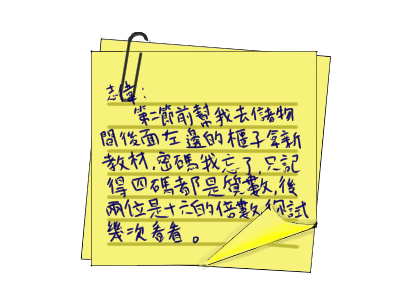 志偉:
第二節前幫我去儲物
間後面左邊的櫃子拿新
教材,密碼我忘了,只記
得四碼都是質數,後
兩位是十六的倍數,你試
幾次看看。